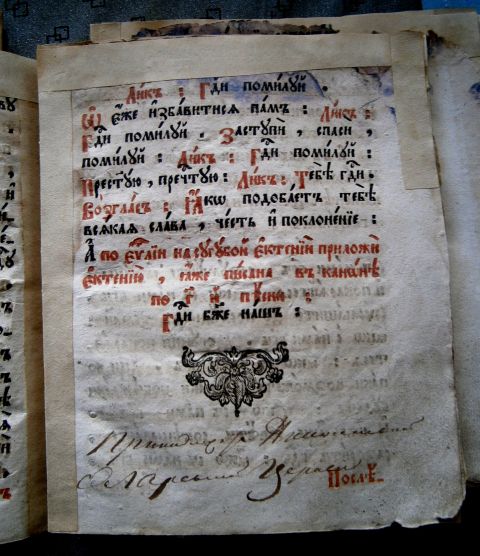 Ликъ : Гди помилуй .
Ѡ еже избавитися намъ : Ликъ :
Гди помилуй . Заступи , спаси ,
помилуй : Ликъ : Гди помилуй :
Престую , пречтую : Ликъ : Тебѣ гди .
Возгласъ : Іакѡ подобаетъ тебѣ
всякая слава , честь и поклоненіе :
А по еѵліи на сугубой ектеніи приложи
ектенію , еже писана въ канонѣ
по г й пѣсни :
Гди бже нашъ :
Церкви
Послѣ